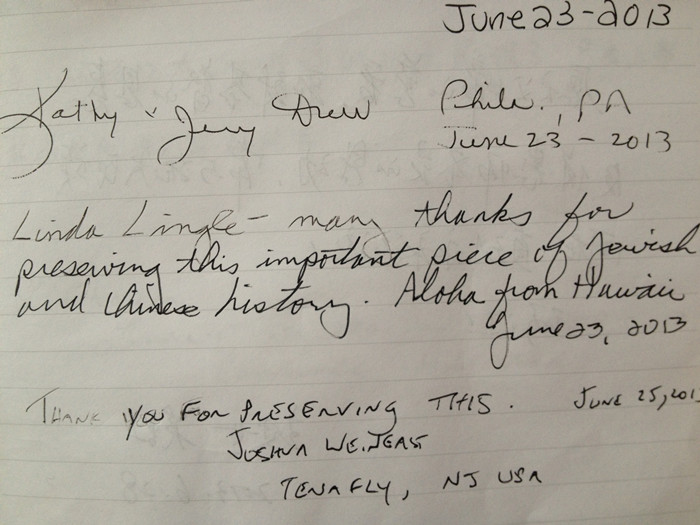 June 23-2013
Kathy & Jerry Drew Phila., PA
June 23-2013
Linda Lingle - many thanks for
preserving this important piece of Jewish
and Chinese history. Aloha from Hawaii
June 23, 2013
THANK YOU FOR PRESERVING THIS. JUNE 25, 201
JOSHUA
TENAFLY, NJ USA